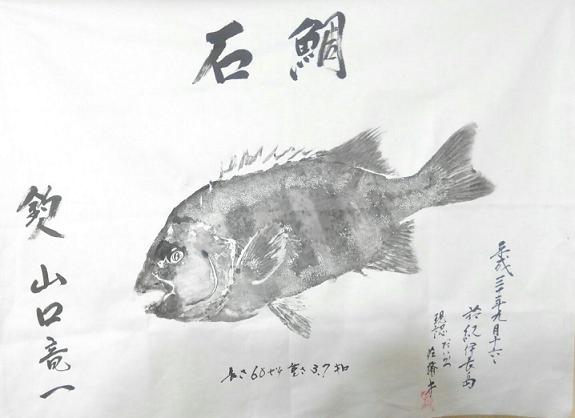 石鯛
平成三十年九月十六日
於紀伊長島
現認 だいかつ
長さ60センチ 重さ3.7キロ
釣人 山口竜一